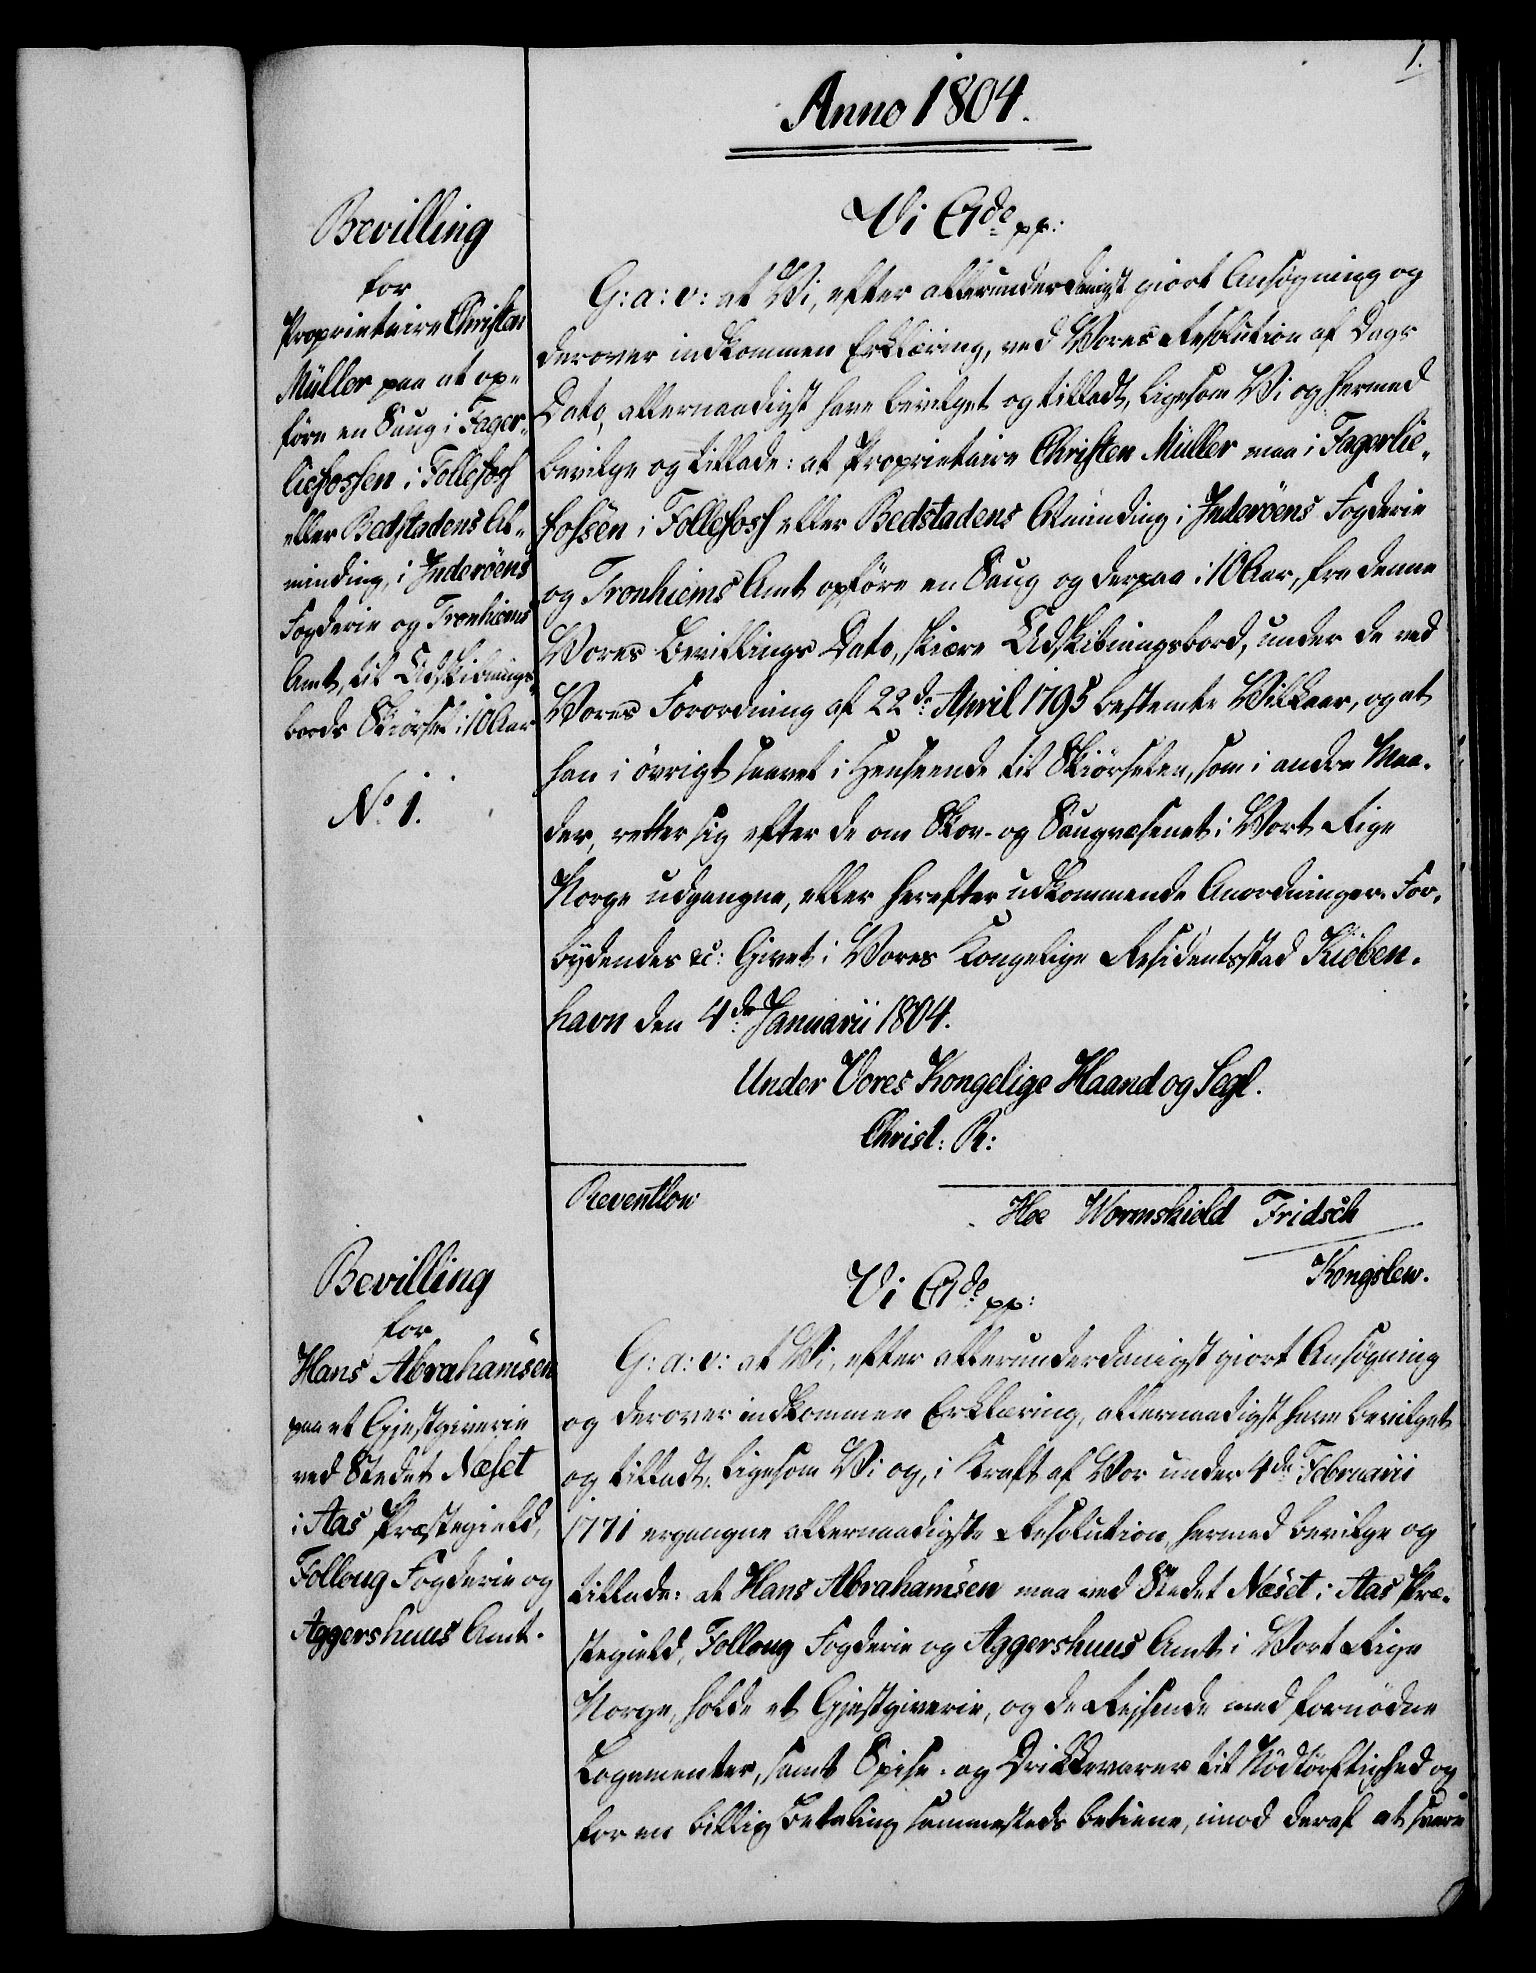 1.
Anno 1804.
Bevilling
for
Proprietaire Christen
Müller paa at op-
føre en Saug i Fager-
liefossen i Follefoss
eller Bedstadens Al-
minding, i Inderöens
Fogderie og Tronhiems
Amt, til Udskibnings-
bords Skiørsel i 10 Aar
No 1.
Vi C 7de pp:
G: a: v: at Vi, efter allerunderdanigst giort Ansøgning og
derover indkommen Erklæring, ved Vores Resolution af Dags
Dato, allernaadigst have bevilget og tilladt, ligesom Vi og hermed
bevilge og tillade: at Proprietaire Christen Müller maa i Fagerlie-
fossen i Follefoss eller Bedstadens Alminding i Inderöens Fogderie
og Tronhiems Amt opføre en Saug og derpaa i 10 Aar, fra denne
Vores Bevillings Dato, skiære Udskibningsbord, under de ved
Vores Forordning af 22de April 1795 bestemte Vilkaar, og at
han i øvrigt saavel i Henseende til Skiørselen, som i andre Maa-
der, retter sig efter de om Skov- og Saugvæsenet i Vort Rige
Norge udgangne, eller herefter udkommende Anordninger. For-
bydendes &c: Givet i Vores Kongelige Residentsstad Kiöben-
havn den 4de Januarii 1804.
Under Vores Kongelige Haand og Segl.
Christ: R:
Reventlow
Hoe Wormskiold Fridsch
Kongslew.
Bevilling
for
Hans Abrahamsen
paa et Gjestgiverie
ved Stedet Næset
i Aas Præstegield,
Folloug Fogderie og
Aggershuus Amt.
Vi C 7de pp:
G: a: v: at Vi, efter allerunderdanigst giort Ansøgning
og derover indkommen Erklæring, allernaadigst have bevilget
og tilladt, ligesom Vi og, i Kraft af Vor under 4de Februarii
1771 ergangne allernaadigste Resolution, hermed bevilge og
tillade: at Hans Abrahamsen maa ved Stedet Næset i Aas Præ-
stegield, Folloug Fogderie og Aggershuus Amt i Vort Rige
Norge, holde et Gjestgiverie, og de Rejsende med fornødne
Logementer, samt Spise- og Drikkevarer til Nødtørftighed og
for en billig Betaling sammesteds betiene, imod deraf at svare